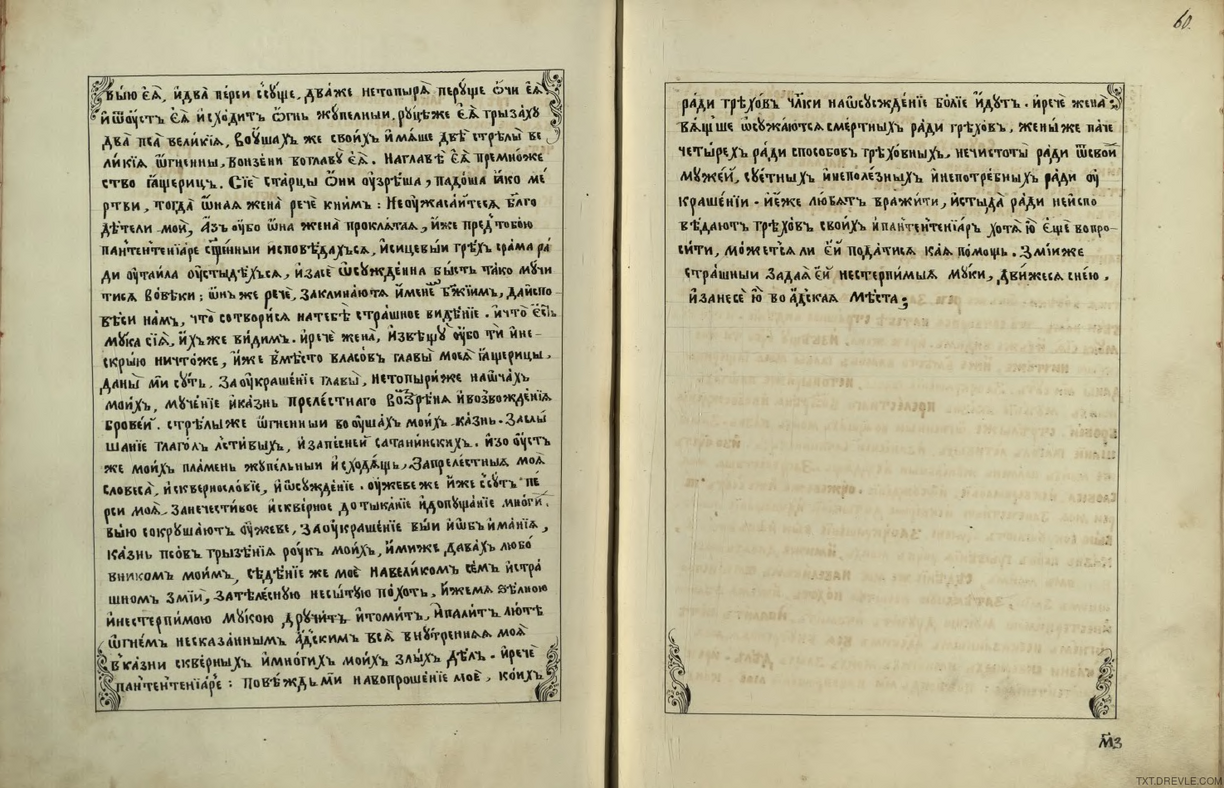 выю еѧ̀, и҆два̀ пе́рси ссꙋ́ще, два́же нетопырѧ̀ перꙋ́ще ѻ҆́чи еѧ̀
и҆ѿоу҆́стъ еѧ̀ и҆схо́дитъ ѻ҆́гнь жꙋ́пелныи, рꙋцѣ́же еѧ̀ грыза́хꙋ
два̀ пса̀ вели́кїѧ, воу҆́шахъ же свои́хъ и҆мѧ́ше двѣ̀ стрѣ́лы ве
ли́кїѧ ѻ҆́гненны, вонзе́ни воглавꙋ̀ еѧ̀. Наглавѣ̀ еѧ̀ премно́же
ство га́щерицъ. Сїѐ ста́рцы ѻ҆нѝ оу҆зрѣ́ша, падо́ша ꙗ҆́ко ме́
ртви, тогда̀ ѻ҆́наѧ жена̀ речѐ кни́мъ: Неоу҆жаса́йтесѧ бл҃го
дѣ́тели моѝ, А҆́зъ оу҆́бо ѻ҆́на жена̀ проклѧ́таѧ, и҆́же пред̾тобо́ю
пантентенїа́ре сщ҃е́нныи и҆сповѣ́дахъсѧ, и҆сицевы́и грѣ́хъ сра́ма ра́
ди оу҆таи́ла оу҆стыдѣ́хъсѧ, и҆засѐ ѡ҆сꙋжде́нна бы́сть та́ко мꙋ́чи
тисѧ во́вѣки: ѻ҆́нъ же речѐ, заклина́ютѧ и҆́менемъ бж҃їимъ, дайспо
вѣ́си на́мъ, что̀ сотвори́сѧ натебѣ̀ стра́шное видѣ́нїе. и҆что̀ є҆́сть
мꙋ́ка сїѧ̀, и҆́хъже ви́димъ. и҆речѐ жена̀, и҆звѣщꙋ̀ оу҆́бо тѝ и҆не-
скры́ю ничто́же, и҆́же вмѣ́сто власо́въ главы̀ моеѧ̀ га́щерицы,
даны̀ мѝ сꙋ́ть. Заоу҆краше́нїе главы̀, нетопы́риже наѻ҆ча́хъ
мои́хъ, мꙋче́нїе и҆ка́знь преле́стнаго возрѣ́нїѧ и҆возвожде́нїѧ
брове́й. стрѣ́лыже ѻ҆́гненныи воу҆ша́хъ мои́хъ ка́знь. Заслы́
шанїе глаго́лъ лсти́выхъ, и҆запѣ́сней сатани́нскихъ. и҆зо оу҆́стъ
же мои́хъ пла́мень жꙋ́пельныи и҆сходѧ́щъ, Запреле́стныѧ моѧ̀
словеса̀, и҆скверносло́вїе, и҆ѡ҆сꙋжде́нїе. оу҆жеве́же и҆́же ссꙋ́тъ пе́
рси моѧ̀. Занечести́вое и҆скве́рное дотыка́нїе и҆допꙋща́нїе мно́ги.
выю сокрꙋша́ютъ оу҆́жеве, Заоу҆краше́нїе вы́и и҆ѡ҆б̾има́нїѧ,
ка́знь псо́въ грызе́нїѧ рꙋ́къ мои́хъ, и҆ми́же дава́хъ любо́
вникомъ мои́мъ, сѣдѣ́нїе же моѐ навели́комъ се́мъ и҆стра́
шномъ змі́и, Затѣле́сную несы́тꙋю по́хоть, и҆́жемѧ ѕѣ́лною
и҆нестерпи́мою мꙋ́кою дрꙋчи́тъ и҆томи́тъ, и҆пали́тъ лю́тѣ
ѻ҆гне́мъ несказа́ннымъ а҆́дскимъ всѧ̀ внꙋ́треннѧѧ моѧ̀
в̾ка́зни скве́рныхъ и҆мно́гихъ мои́хъ злы́хъ дѣ́лъ. и҆речѐ
пантентенїа́ре: повѣ́ждь мѝ навопроше́нїе моѐ, ко́ихъ
60.
ра́ди грѣхо́въ чл҃ки наѡ҆сꙋжде́нїе бо́лїе и҆́дꙋтъ. и҆речѐ жена̀
вѧ́щ̾ше ѡ҆сꙋжа́ютсѧ сме́ртныхъ ра́ди грѣхо́въ, жены́же па́че
четы́рехъ ра́ди спо́собовъ грѣхо́вныхъ, нечистоты̀ ра́ди ѿсвои́
мꙋже́й, сꙋ́етныхъ и҆неполе́зныхъ и҆непотре́бныхъ ра́ди оу҆
краше́нїи. и҆́еже лю́бѧтъ вражи́ти, и҆стыда̀ ра́ди неи҆спо
вѣ́даютъ грѣхо́въ свои́хъ и҆пантентенїа́ръ хотѧ̀ ю҆̀ є҆щѐ вопро-
си́ти, мо́жетсѧ ли є҆́й пода́тисѧ ка́ѧ по́мощь. Змі́иже
стра́шныи задаѧ̀ є҆́й нестерпи́мыѧ мꙋ́ки, дви́жесѧ сне́ю,
и҆занесѐ ю҆̀ во а҆́дскаѧ мѣста̀;
м҃з
TXT.DREVLE.COM